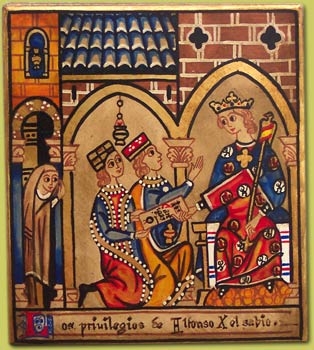 Los privilegios de Alfonso X el sabio.